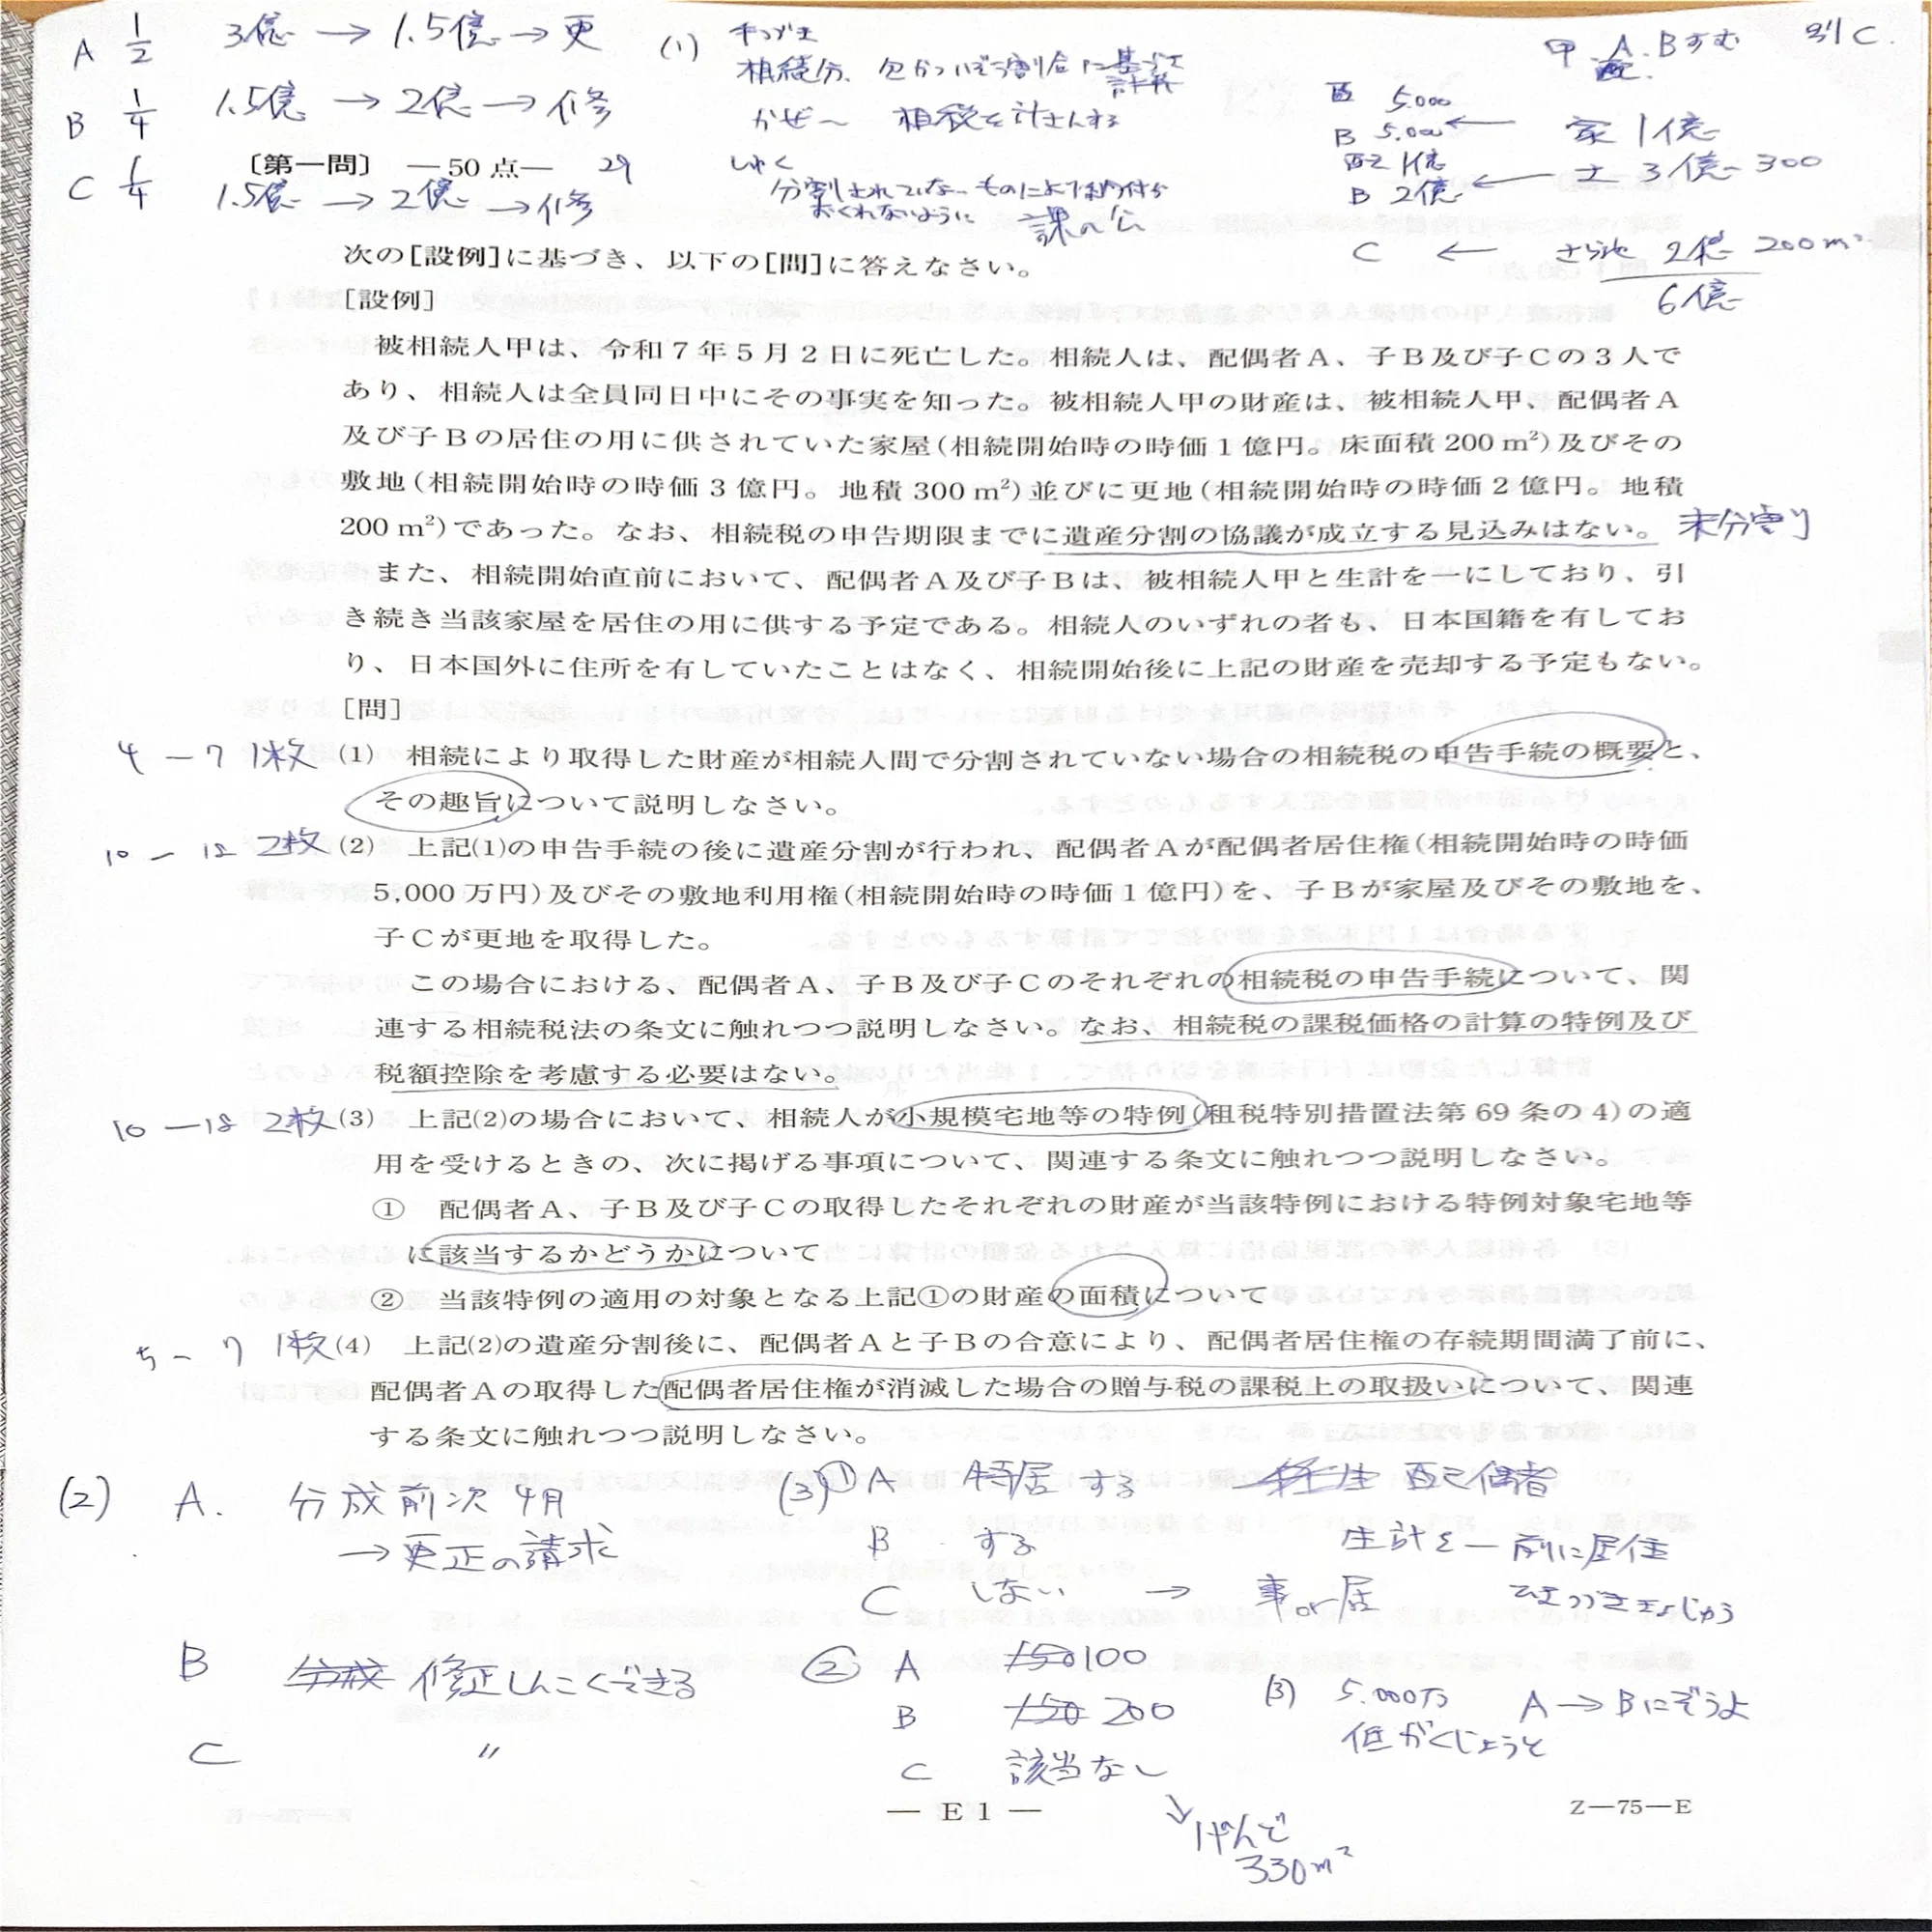 A 1/2 3億 → 1.5億 → 更
B 1/4 1.5億 → 2億 → 修
C 1/4 1.5億 → 2億 → 修
(1) 手つづき
相続分、包かついぞう割合に基づいて計税
かぜ〜 相税を計さんする
しゅく
分割されていないものによって納付が
おくれないように 課の公
甲、A、Bすむ 別C.
配 5.000
B 5.000 ← 家 1億
配 1億
B 2億 ← 土 3億 300
C ← さら地 2億 200m²
6億
〔第一問〕 ―50点― 29
次の[設例]に基づき、以下の[問]に答えなさい。
[設例]
被相続人甲は、令和7年5月2日に死亡した。相続人は、配偶者A、子B及び子Cの3人で
あり、相続人は全員同日中にその事実を知った。被相続人甲の財産は、被相続人甲、配偶者A
及び子Bの居住の用に供されていた家屋(相続開始時の時価1億円。床面積200 m²)及びその
敷地(相続開始時の時価3億円。地積300 m²)並びに更地(相続開始時の時価2億円。地積
200 m²)であった。なお、相続税の申告期限までに遺産分割の協議が成立する見込みはない。 未分割
また、相続開始直前において、配偶者A及び子Bは、被相続人甲と生計を一にしており、引
き続き当該家屋を居住の用に供する予定である。相続人のいずれの者も、日本国籍を有してお
り、日本国外に住所を有していたことはなく、相続開始後に上記の財産を売却する予定もない。
[問]
4 ― 7 1枚 (1) 相続により取得した財産が相続人間で分割されていない場合の相続税の申告手続の概要と、
その趣旨について説明しなさい。
10 ― 18 2枚 (2) 上記(1)の申告手続の後に遺産分割が行われ、配偶者Aが配偶者居住権(相続開始時の時価
5,000万円)及びその敷地利用権(相続開始時の時価1億円)を、子Bが家屋及びその敷地を、
子Cが更地を取得した。
この場合における、配偶者A、子B及び子Cのそれぞれの相続税の申告手続について、関
連する相続税法の条文に触れつつ説明しなさい。なお、相続税の課税価格の計算の特例及び
税額控除を考慮する必要はない。
10 ― 18 2枚 (3) 上記(2)の場合において、相続人が小規模宅地等の特例(租税特別措置法第69条の4)の適
用を受けるときの、次に掲げる事項について、関連する条文に触れつつ説明しなさい。
① 配偶者A、子B及び子Cの取得したそれぞれの財産が当該特例における特例対象宅地等
に該当するかどうかについて
② 当該特例の適用の対象となる上記①の財産の面積について
5 ― 7 1枚 (4) 上記(2)の遺産分割後に、配偶者Aと子Bの合意により、配偶者居住権の存続期間満了前に、
配偶者Aの取得した配偶者居住権が消滅した場合の贈与税の課税上の取扱いについて、関連
する条文に触れつつ説明しなさい。
(2) A. 分成前次 4月
→ 更正の請求
B 修正しんこくできる
C 〃
(3)① A 特居 する 配偶者
B する 生計を一 前に居住
C しない → 事or居 ひきつづききょじゅう
② A 150 100
B 150 200
C 該当なし
↓ げんど
330m²
(3) 5.000万 A → Bにぞうよ
低がくじょうと
― E 1 ―
Z―75―E